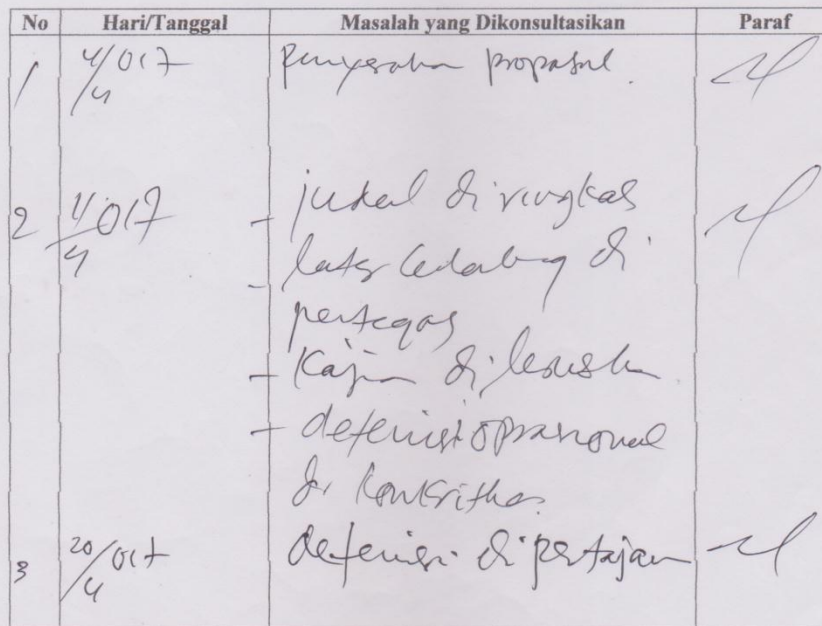 No Hari/Tanggal Masalah yang Dikonsultasikan Paraf
1 4/4 017 Penyerahan proposal.
2 11/4 017 - judul di ringkas
- latar belakang di
pertegas
- Kajian di
- defenisi oprasional
di konkritkan.
3 20/4 017 defenisi di pertajam